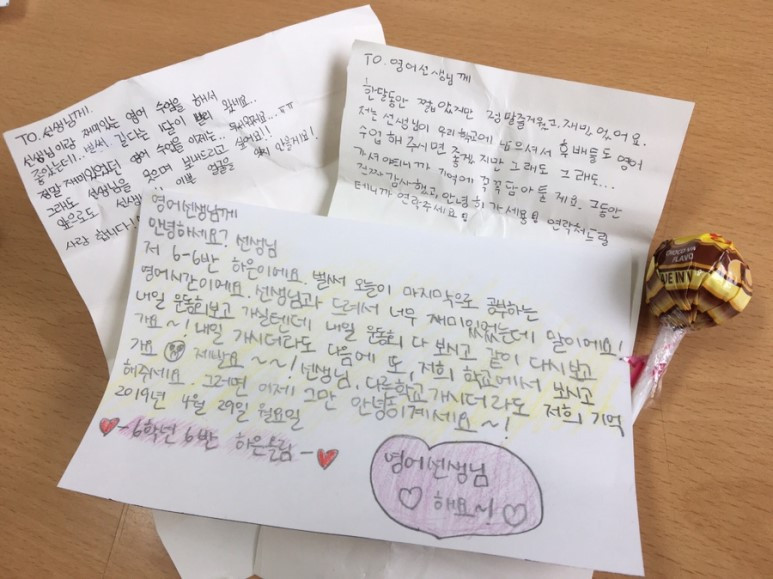 TO. 선생님께.
선생님이랑 재미있는 영어 수업을 해서
좋았는데.. 벌써, 같다는 1달이 빨리 왔네요...
정말 재미있었던 영어 수업을 이제는..
그래도 선생님을 웃으며 보내드리고 싶어요!!
앞으로도 선생님 이쁜 얼굴을 잊지 않을게요!
사랑합니다!
TO. 영어선생님께
한달동안 짧았지만 정말즐거웠고, 재미있어요.
저는 선생님이 우리 학교에 남으셔서 후배들도 영어
수업 해 주시면 좋겠지만 그래도 그래도...
가셔야되니까 기억에 꼭꼭담아둘게요. 그동안
진짜감사했고, 안녕히가세용! 연락처드릴
테니까 연락주세요!
영어선생님께
안녕하세요? 선생님
저 6-6반 하은이에요. 벌써 오늘이 마지막으로 공부하는
영어시간이에요. 선생님과 드려서 너무 재미있었는데 말이에요!
내일 운동회보고 가실텐데 내일 운동회 다 보시고 같이 다시보고
가요~! 내일 가시더라도 다음에 또, 저희 학교에서 보시고
가요 제발요 ~~! 선생님, 다른학교가시더라도 저희 기억
해주세요. 그러면 이제 그만 안녕히계세요~!
2019년 4월 29일 월요일
-6학년 6반 하은올림-
영어선생님
해요~!
CHOCO
FLAVO
DE IN V